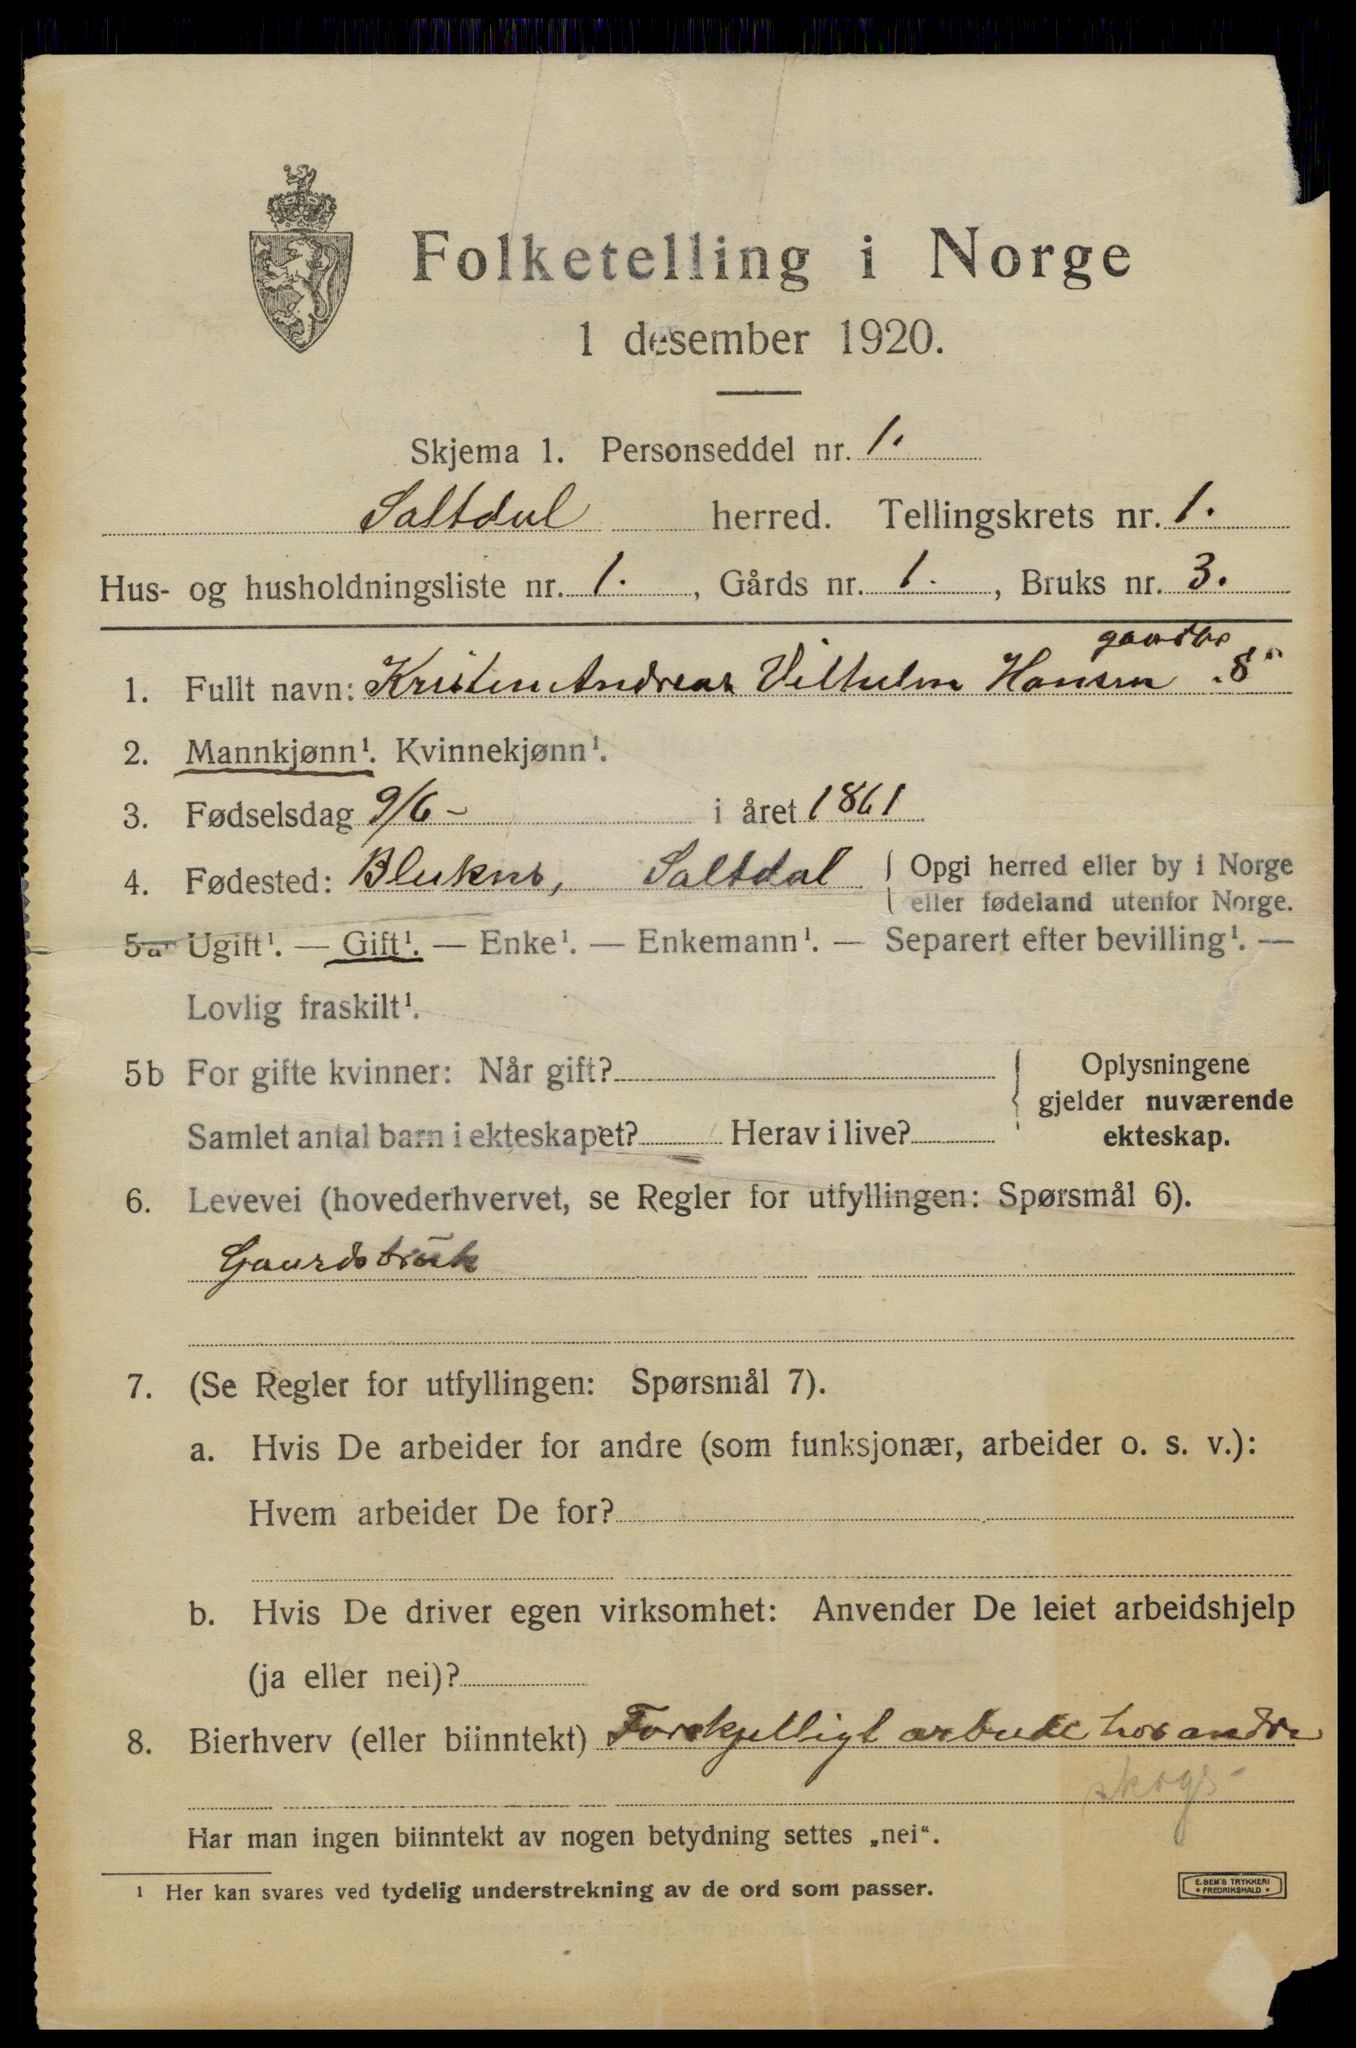 Folketelling i Norge
1 desember 1920.
Skjema 1. Personseddel nr. 1.
Saltdal herred. Tellingskrets nr. 1.
Hus- og husholdningsliste nr. 1. , Gårds nr. 1. , Bruks nr. 3.
1. Fullt navn: Kristen Andreas Vilhelm Hansen
2. Mannkjønn¹. Kvinnekjønn¹.
3. Fødselsdag 9/6 - i året 1861
4. Fødested: Saltdal { Opgi herred eller by i Norge
eller fødeland utenfor Norge.
5a Ugift¹. — Gift¹. — Enke¹. — Enkemann¹. — Separert efter bevilling¹. —
Lovlig fraskilt¹.
5b For gifte kvinner: Når gift? { Oplysningene
gjelder nuværende
Samlet antal barn i ekteskapet? Herav i live? ekteskap.
6. Levevei (hovederhvervet, se Regler for utfyllingen: Spørsmål 6).
Gaardsbruk
7. (Se Regler for utfyllingen: Spørsmål 7).
a. Hvis De arbeider for andre (som funksjonær, arbeider o. s. v.):
Hvem arbeider De for?
b. Hvis De driver egen virksomhet: Anvender De leiet arbeidshjelp
(ja eller nei)?
8. Bierhverv (eller biinntekt) Forskjelligt arbeide hos andre
skogs-
Har man ingen biinntekt av nogen betydning settes „nei“.
¹ Her kan svares ved tydelig understrekning av de ord som passer.
E. SEM'S TRYKKERI
• FREDRIKSHALD •